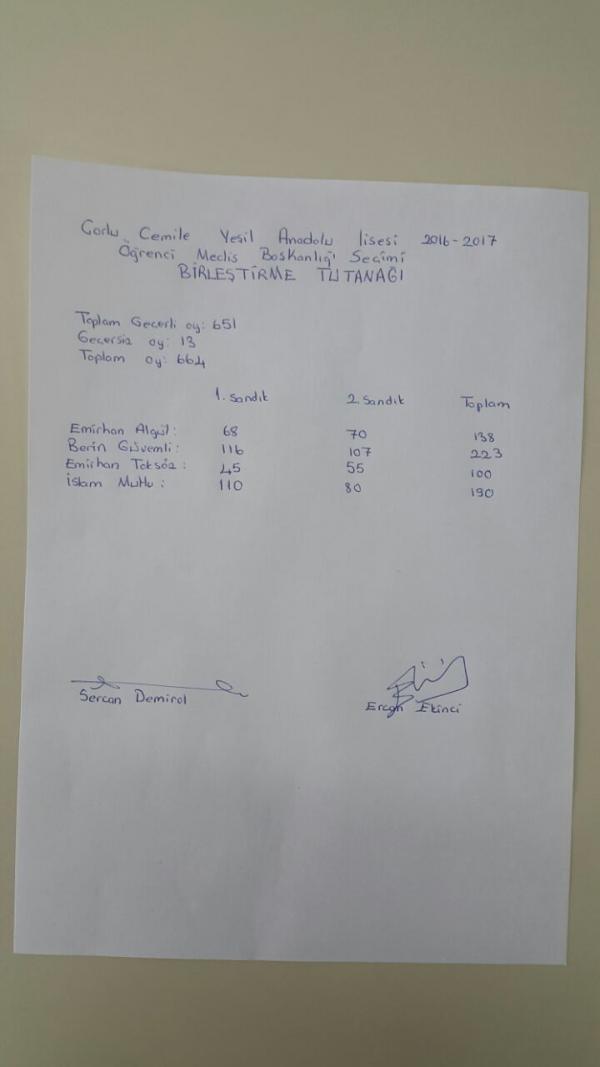 Çorlu Cemile Yeşil Anadolu lisesi 2016-2017
Öğrenci Meclis Başkanlığı Seçimi
BİRLEŞTİRME TUTANAĞI
Toplam Geçerli oy: 651
Geçersiz oy: 13
Toplam oy: 664
1. Sandık 2. Sandık Toplam
Emirhan Algül: 68 70 138
Berin Güvemli: 116 107 223
Emirhan Toksöz: 45 55 100
İslam Mutlu: 110 80 190
Sercan Demirol Ercan Ekinci